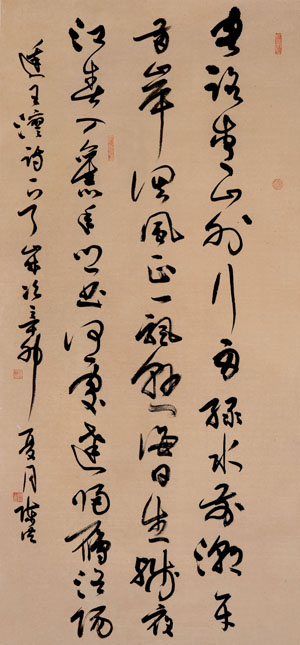 客路青山外行舟緑水前潮平
兩岸闊風正一帆懸海日生殘夜
江春入舊年鄉書何處達歸雁洛陽
邊王灣詩一首歲次辛卯夏月